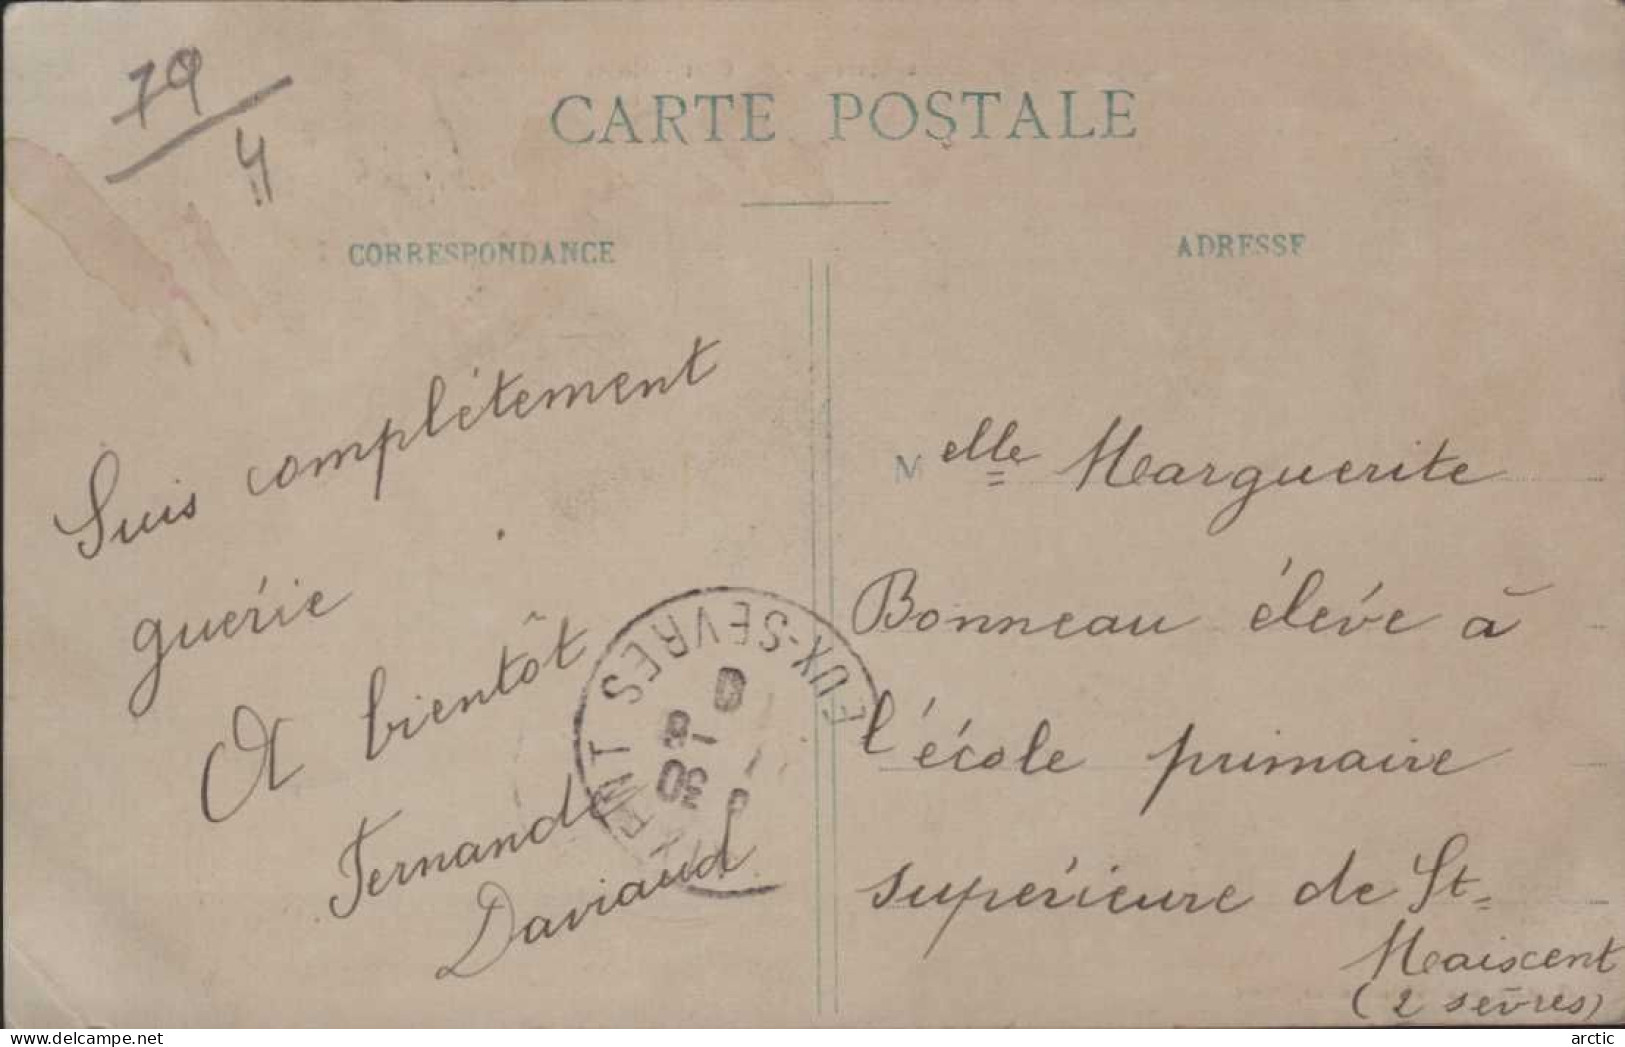 79
4
CARTE POSTALE
CORRESPONDANCE
ADRESSE
Suis complètement
guérie
A bientôt
Fernande
Daviaud
Melle Marguerite
Bonneau élève à
l'école primaire
supérieure de St-
Maixcent
(2 sèvres)
EUX-SEVRES
delcampe.net
arctic